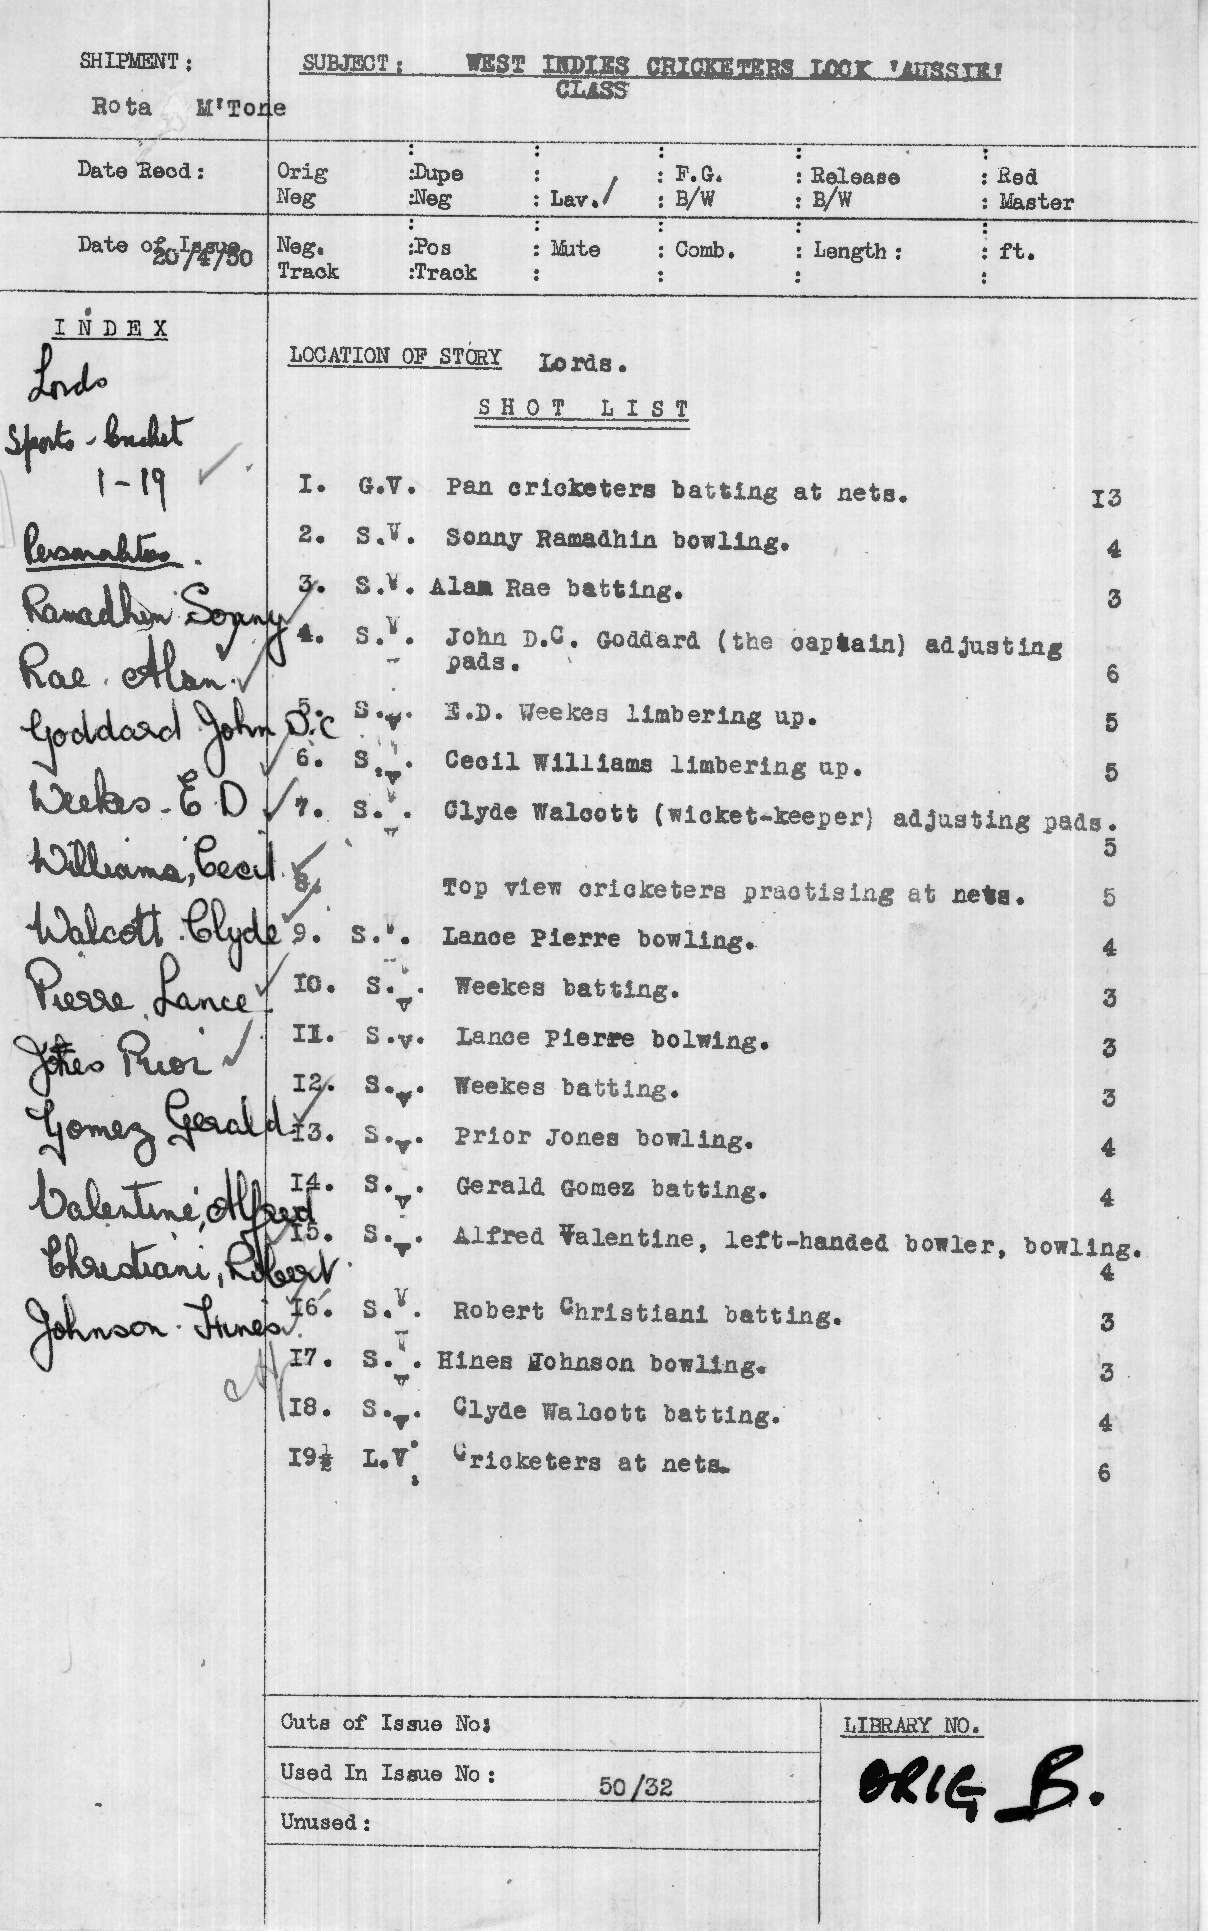 SHIPMENT:
Rota M'Tone
SUBJECT: WEST INDIES CRICKETERS LOOK 'AUSSIE'
CLASS
Date Recd:
Orig :Dupe : : F.G. : Release : Red
Neg :Neg : Lav./ : B/W : B/W : Master
Date of Issue
20/4/50
Neg. :Pos : Mute : Comb. : Length: : ft.
Track :Track : : : :
INDEX
Lords
Sports - Cricket
1-19
Personalities.
Ramadhin Sonny
Rae. Alan.
Goddard John D.C
Weekes - E.D
Williams, Cecil
Walcott. Clyde
Pierre, Lance
Jones Prior
Gomez Gerald
Valentine, Alfred
Christiani, Robert
Johnson. Hines
LOCATION OF STORY Lords.
SHOT LIST
I. G.V. Pan cricketers batting at nets. I3
2. S.V. Sonny Ramadhin bowling. 4
3. S.V. Alan Rae batting. 3
4. S.V. John D.C. Goddard (the captain) adjusting
pads. 6
5. S.V. E.D. Weekes limbering up. 5
6. S.V. Cecil Williams limbering up. 5
7. S.V. Clyde Walcott (wicket-keeper) adjusting pads.
5
8. Top view cricketers practising at nets. 5
9. S.V. Lance Pierre bowling. 4
I0. S.V. Weekes batting. 3
II. S.V. Lance Pierre bolwing. 3
I2. S.V. Weekes batting. 3
I3. S.V. Prior Jones bowling. 4
I4. S.V. Gerald Gomez batting. 4
I5. S.V. Alfred Valentine, left-handed bowler, bowling.
4
I6. S.V. Robert Christiani batting. 3
I7. S.V. Hines Johnson bowling. 3
I8. S.V. Clyde Walcott batting. 4
I9½ L.V. Cricketers at nets. 6
Cuts of Issue No:
Used In Issue No: 50/32
Unused:
LIBRARY NO.
ORIG B.